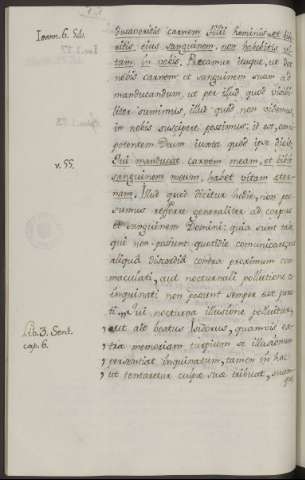 Ioann. 6. 54.
manducaveritis carnem Filii hominis, et bibe
ritis ejus sanguinem, non habebitis vi
tam in vobis. Precamur itaque, ut det
nobis carnem, et sanguinem suum ad
manducandum, ut per illud quod visibi
liter sumimus, illud quod non videmus,
in nobis suscipere possimus; id est, om
potentem Deum juxta quod ipse dicit:
v. 55.
Qui manducat carnem meam, et bibit
sanguinem meum, habet vitam æter
nam. Illud quod dicitur hodie, non pos
sumus referre generaliter ad corpus
et sanguinem Domini; quia sunt tales
qui non possunt quotidie communicare, aut
aliqua discordia contra proximum com
maculati, aut nocturnali pollutione co
inquinati non possunt semper esse para
ti. Qui nocturna illusione polluitur,
Lib. 3. Sent.
cap. 6.
ut ait beatus Isidorus, quamvis ex
tra memoriam turpium se illusionum
persentiat inquinatum, tamen in hac
ut tentaretur culpæ suæ tribuat, suam